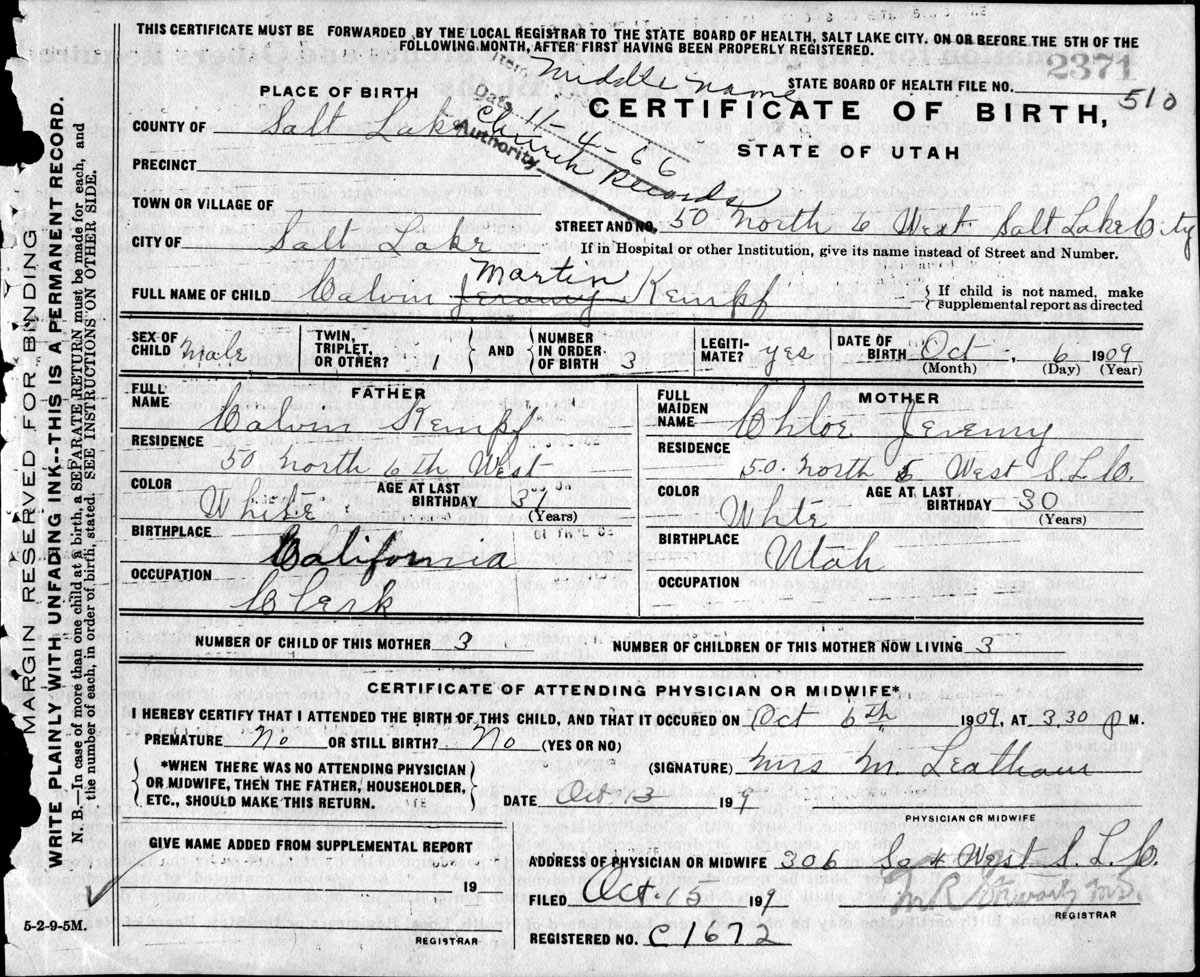 THIS CERTIFICATE MUST BE FORWARDED BY THE LOCAL REGISTRAR TO THE STATE BOARD OF HEALTH, SALT LAKE CITY. ON OR BEFORE THE 5TH OF THE
FOLLOWING MONTH, AFTER FIRST HAVING BEEN PROPERLY REGISTERED.
2371
Item Middle name
Date 11-4-66
Authority Church Records
STATE BOARD OF HEALTH FILE NO. 510
PLACE OF BIRTH
CERTIFICATE OF BIRTH,
STATE OF UTAH
COUNTY OF Salt Lake
PRECINCT
TOWN OR VILLAGE OF
STREET AND NO. 50 North 6 West Salt Lake City
CITY OF Salt Lake
If in Hospital or other Institution, give its name instead of Street and Number.
Martin
FULL NAME OF CHILD Calvin Jeremy Kempf
If child is not named, make
supplemental report as directed
SEX OF CHILD Male
TWIN, TRIPLET, OR OTHER? 1
AND
NUMBER IN ORDER OF BIRTH 3
LEGITIMATE? yes
DATE OF BIRTH Oct, 6 1909
(Month) (Day) (Year)
FATHER
FULL NAME Calvin Kempf
RESIDENCE
50 North 6th West
COLOR White
AGE AT LAST BIRTHDAY 31
(Years)
BIRTHPLACE California
OCCUPATION
Clerk
MOTHER
FULL MAIDEN NAME Chloe Jeremy
RESIDENCE
50. North 6 West S.L.C.
COLOR White
AGE AT LAST BIRTHDAY 30
(Years)
BIRTHPLACE Utah
OCCUPATION
NUMBER OF CHILD OF THIS MOTHER 3
NUMBER OF CHILDREN OF THIS MOTHER NOW LIVING 3
CERTIFICATE OF ATTENDING PHYSICIAN OR MIDWIFE*
I HEREBY CERTIFY THAT I ATTENDED THE BIRTH OF THIS CHILD, AND THAT IT OCCURED ON Oct 6th 1909, AT 3.30 P M.
PREMATURE No OR STILL BIRTH? No (YES OR NO)
*WHEN THERE WAS NO ATTENDING PHYSICIAN
OR MIDWIFE, THEN THE FATHER, HOUSEHOLDER,
ETC., SHOULD MAKE THIS RETURN.
(SIGNATURE) Mrs M. Leatham
DATE Oct 13 199
PHYSICIAN OR MIDWIFE
GIVE NAME ADDED FROM SUPPLEMENTAL REPORT
19
REGISTRAR
ADDRESS OF PHYSICIAN OR MIDWIFE 306 So 4 West S.L.C.
FILED Oct. 15 199
REGISTRAR
REGISTERED NO. C1672
5-2-9-5M.
MARGIN RESERVED FOR BINDING
WRITE PLAINLY WITH UNFADING INK--THIS IS A PERMANENT RECORD.
N. B.—In case of more than one child at a birth, a SEPARATE RETURN must be made for each, and
the number of each, in order of birth, stated. SEE INSTRUCTIONS ON OTHER SIDE.